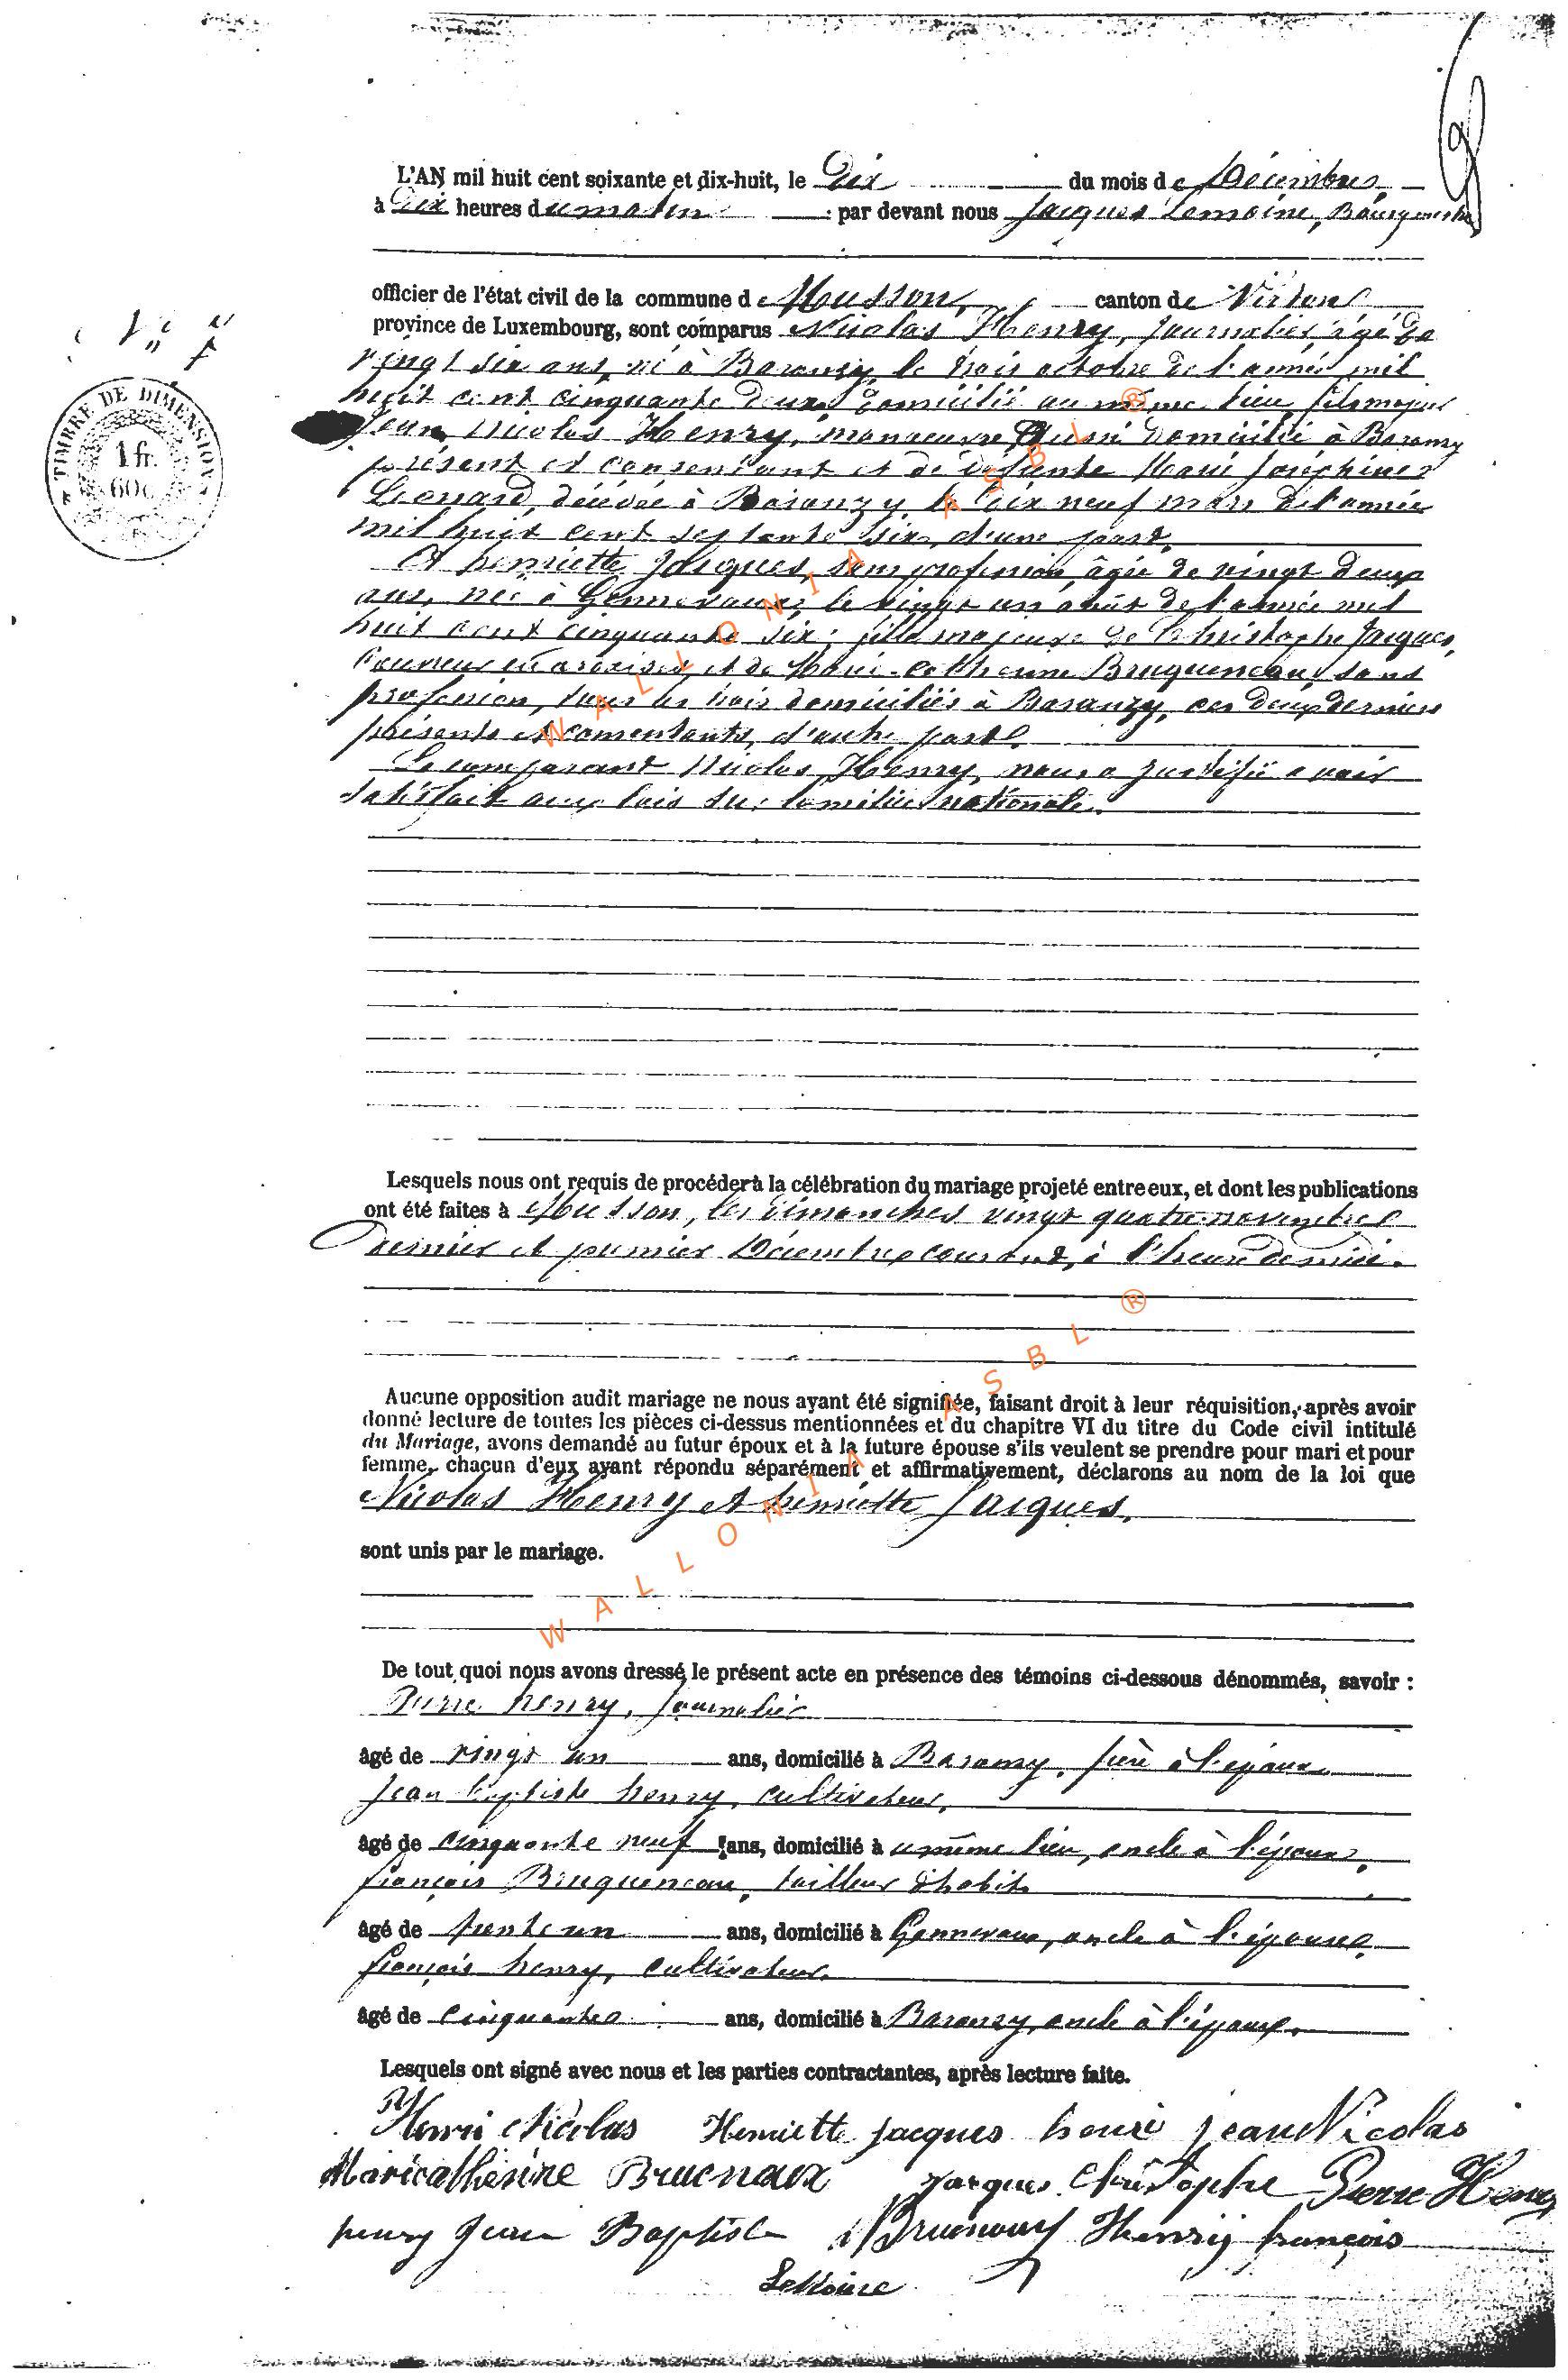 L'AN mil huit cent soixante et dix-huit, le Dix du mois de Décembre
à Dix heures du matin par devant nous Jacques Lemoine, Bourgmestre
officier de l'état civil de la commune de Musson, canton de Virton
province de Luxembourg, sont comparus Nicolas Henry, journalier, âgé de
vingt six ans, né à Baranzy, le trois octobre de l'année mil
huit cent cinquante deux, domicilié au même lieu, fils majeur
Jean Nicolas Henry, manoeuvre, aussi domicilié à Baranzy
présent et consentant et de défunte Marie Joséphine
Leonard, décédée à Baranzy, le dix neuf mars de l'année
mil huit cent septante six, d'une part.
Et henriette Jacques, sans profession, âgée de vingt deux
ans, née à Gennevaux, le vingt un août de l'année mil
huit cent cinquante six, fille majeure de Christophe Jacques,
couvreur en ardoises, et de Marie-Catherine Bruqueneau, sans
profession, tous les trois domiciliés à Baranzy, ces deux derniers
présents et consentants, d'autre part.
Le comparant Nicolas Henry, nous a justifié avoir
satisfait aux lois sur la milice nationale.
TIMBRE DE DIMENSION
1 fr.
60c
Lesquels nous ont requis de procéder à la célébration du mariage projeté entre eux, et dont les publications
ont été faites à Musson, les dimanches vingt quatre novembre
dernier et premier Décembre courant, à l'heure de midi.
Aucune opposition audit mariage ne nous ayant été signifiée, faisant droit à leur réquisition, après avoir
donné lecture de toutes les pièces ci-dessus mentionnées et du chapitre VI du titre du Code civil intitulé
du Mariage, avons demandé au futur époux et à la future épouse s'ils veulent se prendre pour mari et pour
femme, chacun d'eux ayant répondu séparément et affirmativement, déclarons au nom de la loi que
Nicolas Henry et henriette Jacques.
sont unis par le mariage.
De tout quoi nous avons dressé le présent acte en présence des témoins ci-dessous dénommés, savoir :
Pierre henry, journalier
âgé de vingt un ans, domicilié à Baranzy, frère à l'époux
Jean baptiste henry, cultivateur,
âgé de cinquante neuf ans, domicilié à u même lieu, oncle à l'époux,
françois Bruqueneau, tailleur d'habits
âgé de trente un ans, domicilié à Gennevaux, oncle à l'épouse
françois henry, cultivateur
âgé de cinquante ans, domicilié à Baranzy, oncle à l'époux.
Lesquels ont signé avec nous et les parties contractantes, après lecture faite.
Henri Nicolas Henriette Jacques henri jean Nicolas
Maricatherine Brucnaux Jacques Christophe Pierre Henry
henry Jean Baptiste Henrÿ françois
Lemoine
WALLONIA ASBL ®
WALLONIA ASBL ®